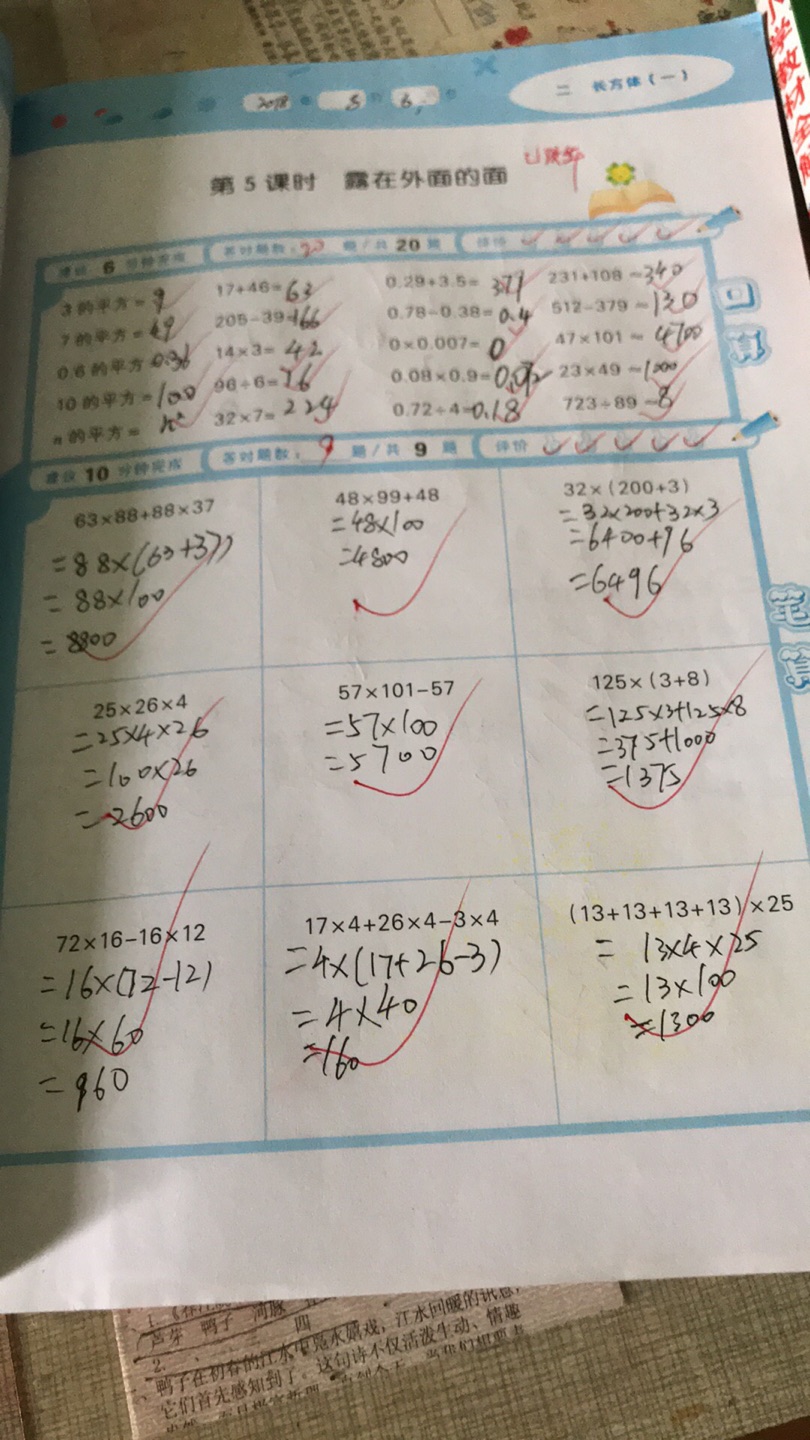 小学教材全解
2018 5 6
二 长方体(一)
第5课时 露在外面的面
建议 6 分钟完成 答对题数:20 题/共 20 题 评价
3的平方=9 17+46=63 0.29+3.5= 231+108≈340
7的平方=49 205-39=166 0.78-0.38=0.4 512-379≈130
0.6的平方=0.36 14×3=42 0×0.007=0 47×101≈4700
10的平方=100 96÷6=16 0.08×0.9= 23×49≈1000
n的平方=n² 32×7=224 0.72÷4=0.18 723÷89≈8
口算
建议 10 分钟完成 答对题数:9 题/共 9 题 评价
63×88+88×37
=88×(63+37)
=88×100
=8800
48×99+48
=48×100
=4800
32×(200+3)
=32×200+32×3
=6400+96
=6496
笔算
25×26×4
=25×4×26
=100×26
=2600
57×101-57
=57×100
=5700
125×(3+8)
=125×3+125×8
=375+1000
=1375
72×16-16×12
=16×(72-12)
=16×60
=960
17×4+26×4-3×4
=4×(17+26-3)
=4×40
=160
(13+13+13+13)×25
=13×4×25
=13×100
=1300
芦芽 鸭子 河豚
三 四
2.
鸭子在初春的江水中兔水嬉戏,江水回暖的讯息,
它们首先感知到了。这句诗不仅活泼生动、情趣